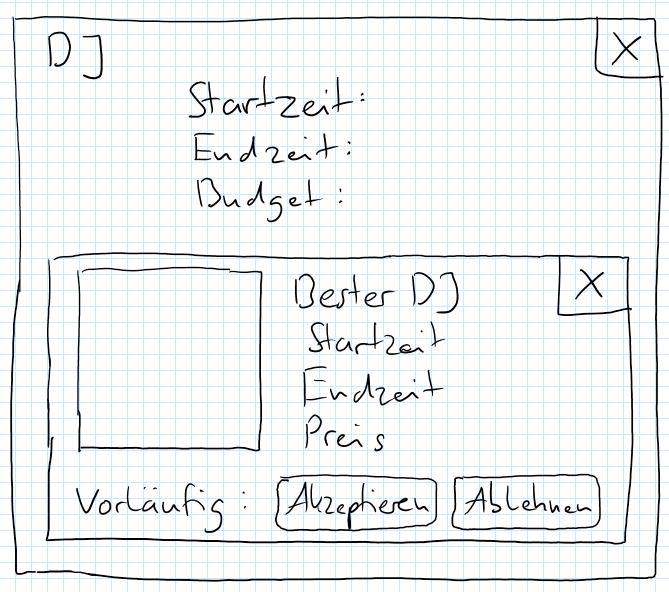 DJ X
Startzeit:
Endzeit:
Budget:
Bester DJ X
Startzeit
Endzeit
Preis
Vorläufig: Akzeptieren Ablehnen